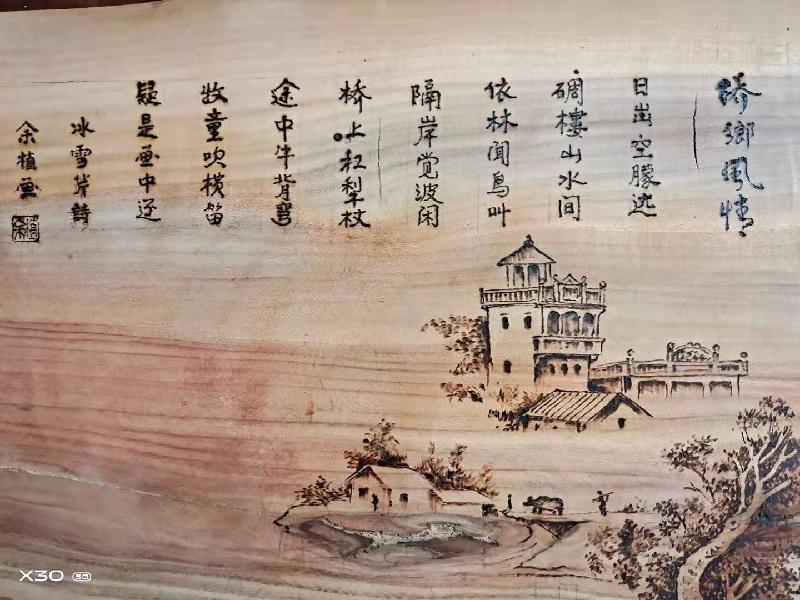 侨鄉風情
日出空朦远
碉樓山水间
依林闻鸟叫
隔岸觉波闲
桥上扛犁杖
途中牛背弯
牧童吹横笛
疑是画中还
冰雪芹詩
余植画
X30 5G